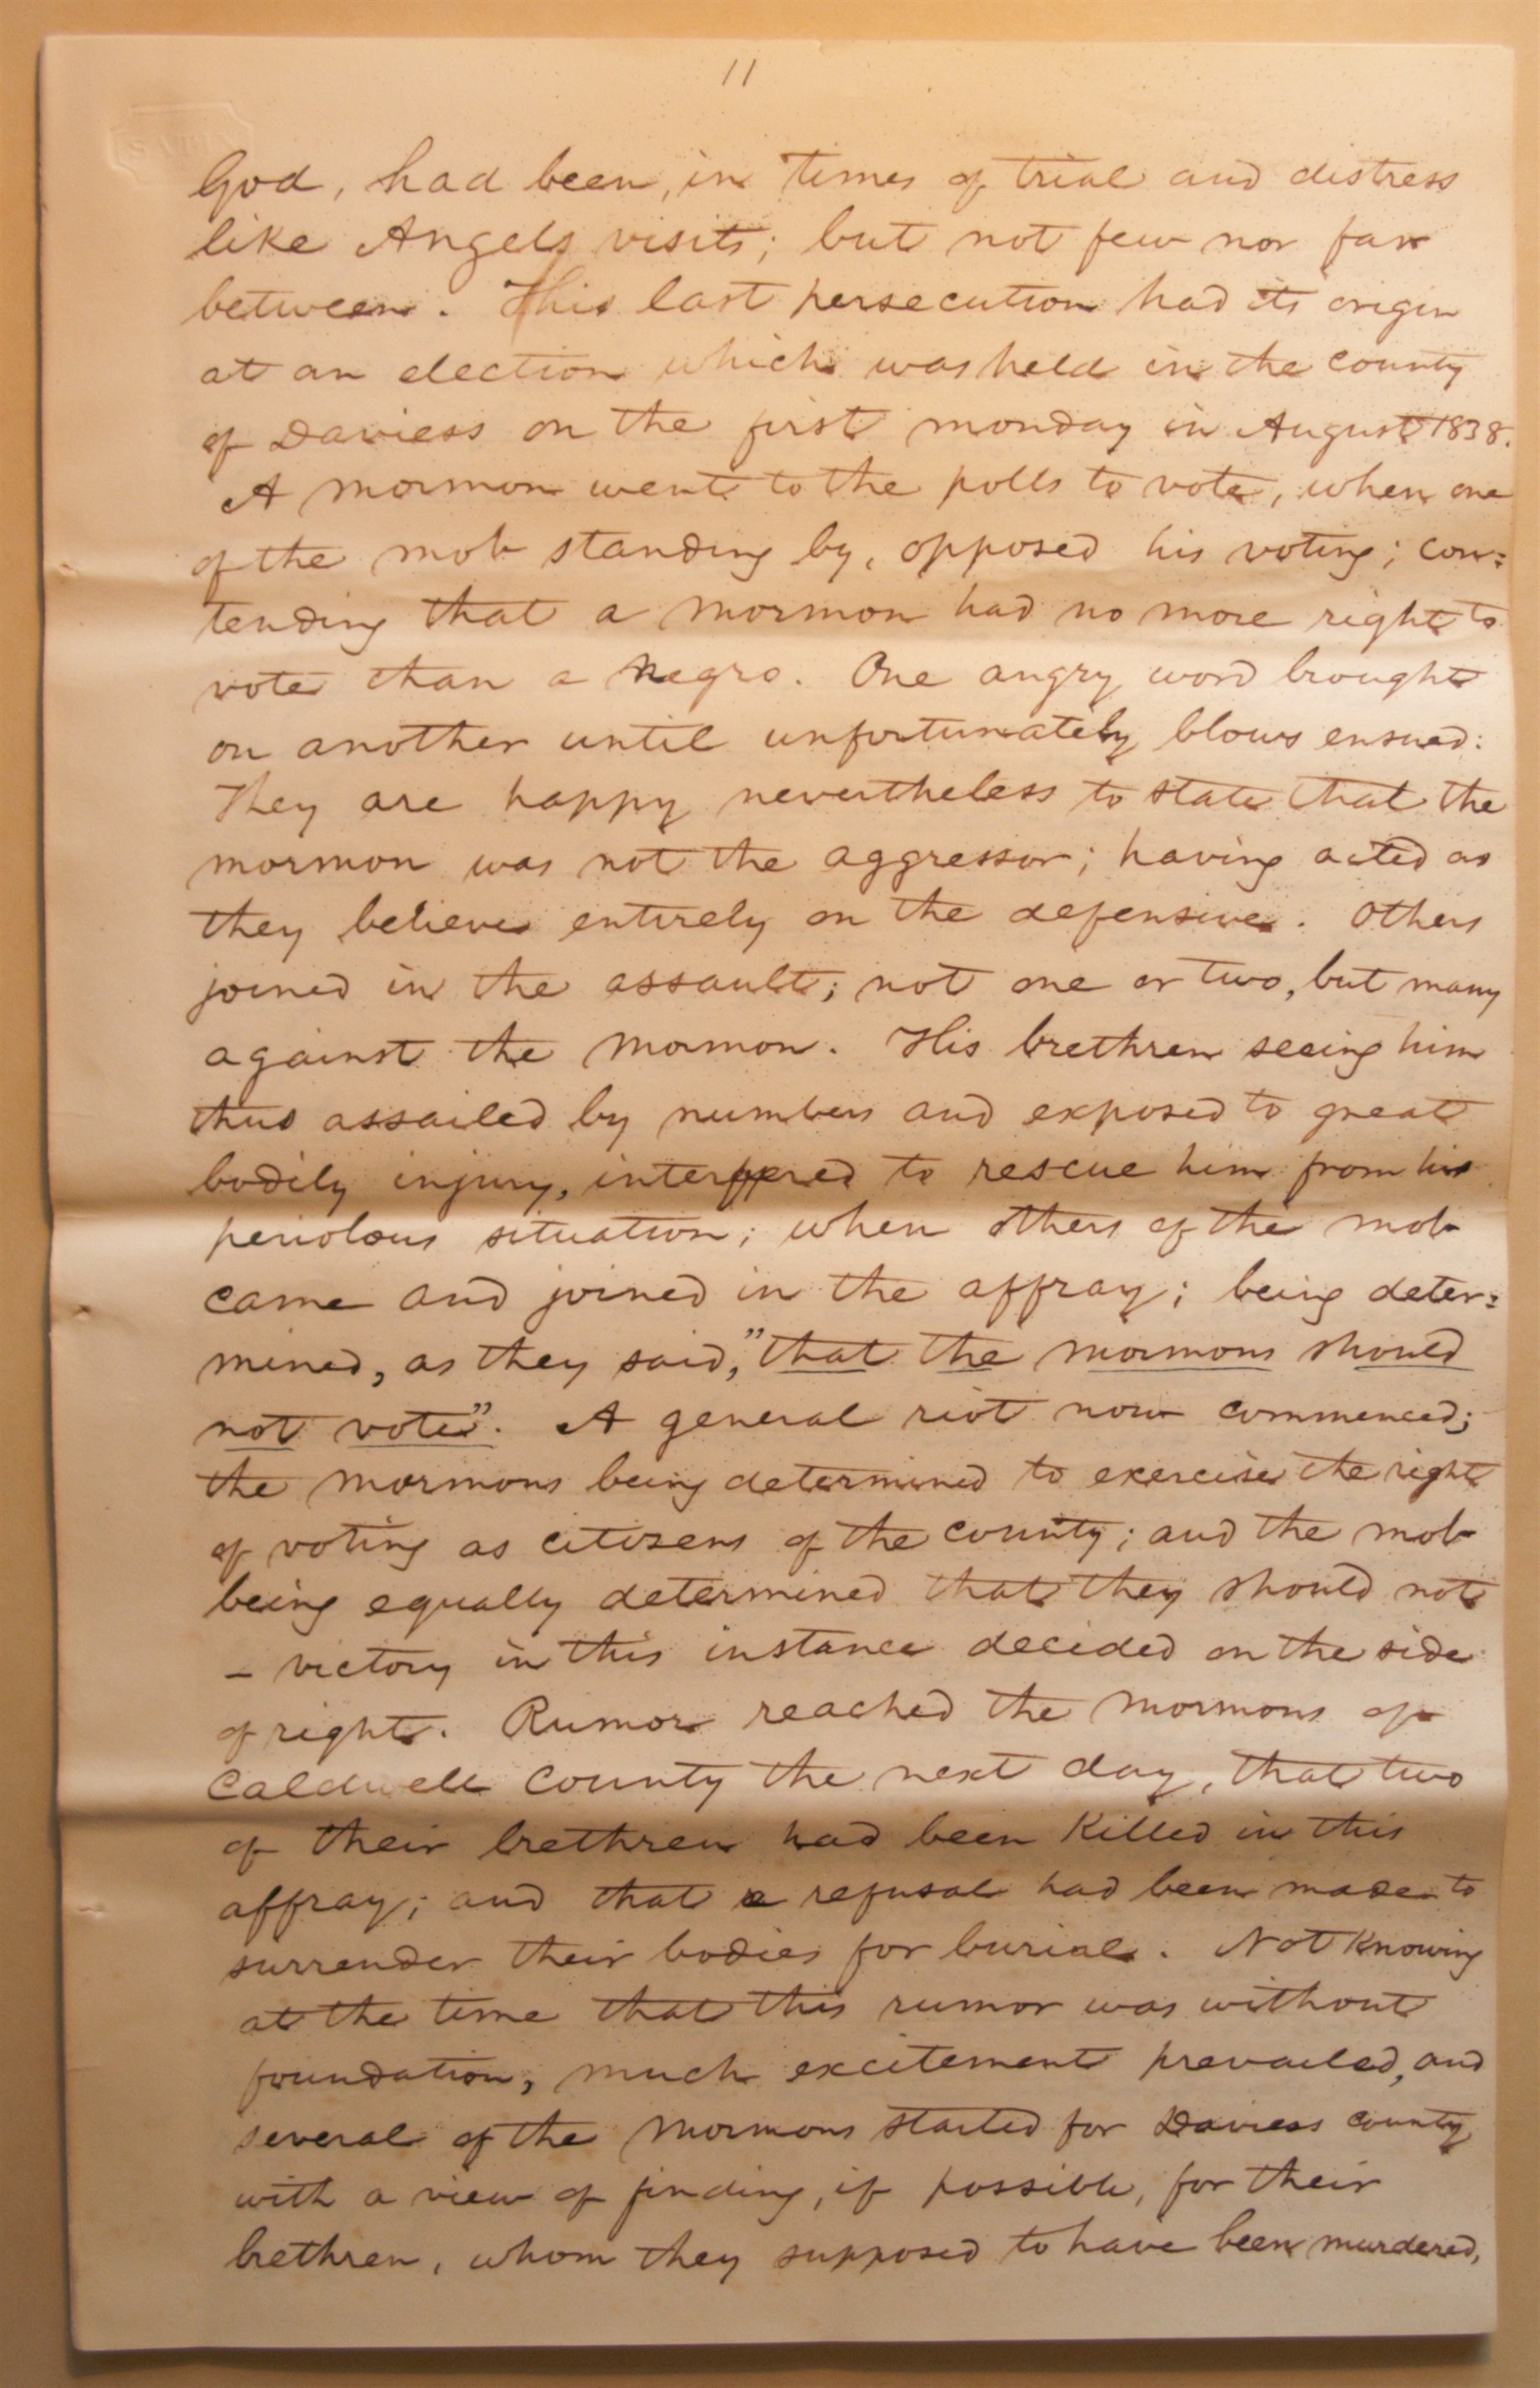 11
God, had been, in times of trial and distress
like Angels visits; but not few nor far
between. This last persecution had its origin
at an election which was held in the county
of Daviess on the first monday in August 1838.
A mormon went to the polls to vote, when one
of the mob standing by, opposed his voting; con=
tending that a mormon had no more right to
vote than a negro. One angry word brought
on another until unfortunately blows ensued:
They are happy nevertheless to state that the
mormon was not the aggressor; having acted as
they believe entirely on the defensive. Others
joined in the assault; not one or two, but many
against the mormon. His brethren seeing him
thus assailed by numbers and exposed to great
bodily injury, interffered to rescue him from his
periolous situation; when others of the mob
came and joined in the affray; being deter=
mined, as they said, "that the mormons should
not vote". A general riot now commenced;
the mormons being determined to exercise the right
of voting as citizens of the county; and the mob
being equally determined that they should not
- victory in this instance decided on the side
of right. Rumor reached the mormons of
Caldwell County the next day, that two
of their brethren had been killed in this
affray; and that a refusal had been made to
surrender their bodies for burial. Not knowing
at the time that this rumor was without
foundation, much excitement prevailed, and
several of the mormons started for Daviess county
with a view of finding, if possible, for their
brethren, whom they supposed to have been murdered,